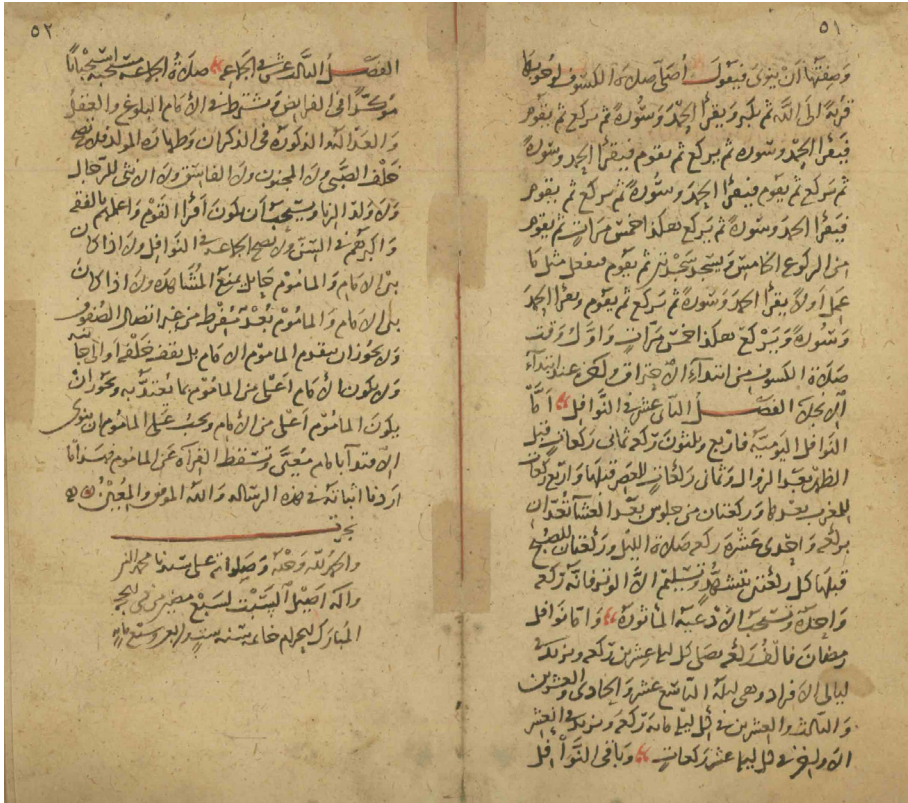 ٥١
وصفتها ان ينوى فيقول اصلى صلاة الكسوف لوجوبها
قربة الى الله ثم يكبر ويقرأ الحمد وسورة ثم يركع ثم يقوم
فيقرأ الحمد وسورة ثم يركع ثم يقوم فيقرأ الحمد وسورة
ثم يركع ثم يقوم فيقرأ الحمد وسورة ثم يركع ثم يقوم
فيقرأ الحمد وسورة ثم يركع هكذا خمس مرات ثم يقوم
من الركوع الخامس ويسجد سجدتين ثم يقوم فيفعل مثل ما
عمل اولا يقرأ الحمد وسورة ثم يركع ثم يقوم ويقرأ الحمد
وسورة ويركع هكذا خمس مرات واول وقت
صلاة الكسوف من ابتداء الاحتراق ولكن عند ابتداء
الانجلاء الفصل الثانى عشر فى النوافل اما
النوافل اليومية فاربع وثلثون ركعة ثمانى ركعات قبل
الظهر بعد الزوال وثمانى ركعات للعصر قبلها واربع ركعات
للمغرب بعدها وركعتان من جلوس بعد العشا تعدان
بركعة واحدى عشرة ركعة صلاة الليل وركعتان للصبح
قبلها كل ركعتين بتشهد وتسليم الا الوتر فانه ركعة
واحدة وتستحب الادعية الماثورة واما نوافل
رمضان فالف ركعة يصلى كل ليلة عشرين ركعة ويزيد فى
ليالى الافراد وهى ليلة التاسع عشر والحادى والعشرين
والثالث والعشرين فى كل ليلة مائة ركعة ويزيد فى العشر
الاواخر فى كل ليلة عشر ركعات وباقى النوافل
٥٢
الفصل الثالث عشر فى الجماعة صلاة الجماعة مستحبة استحبابا
موكدا فى الفرايض ويشترط فى الامام البلوغ والعقل
والعدالة والذكورة فى الذكران وطهارة المولد فلا تصح
خلف الصبى ولا المجنون ولا الفاسق ولا الانثى للرجال
ولا ولد الزنا ويستحب ان يكون اقرأ القوم واعلمهم بالفقه
واكبرهم فى السن ولا تصح الجماعة فى النوافل ولا اذا كان
بين الامام والماموم حايل يمنع المشاهدة ولا اذا كان
بين الامام والماموم بعد مفرط من غير اتصال الصفوف
ولا يجوز ان يتقدم الماموم الامام بل يقف خلفه او الى جانبه
ولا يكون الامام اعلى من الماموم بما يعتد به ويجوز ان
يكون الماموم اعلى من الامام ويجب على الماموم ان ينوى
الاقتدآ بامام معين وتسقط القرآة عن الماموم فهذا ما
اردنا اثباته فى هذه الرسالة والله الموفق والمعين
نجزت
والحمد لله وحده وصلواته على سيدنا محمد النبى
واله اصيل السبت لسبع مضين من ذى الحجة
المبارك الحرام خاتمة سنة